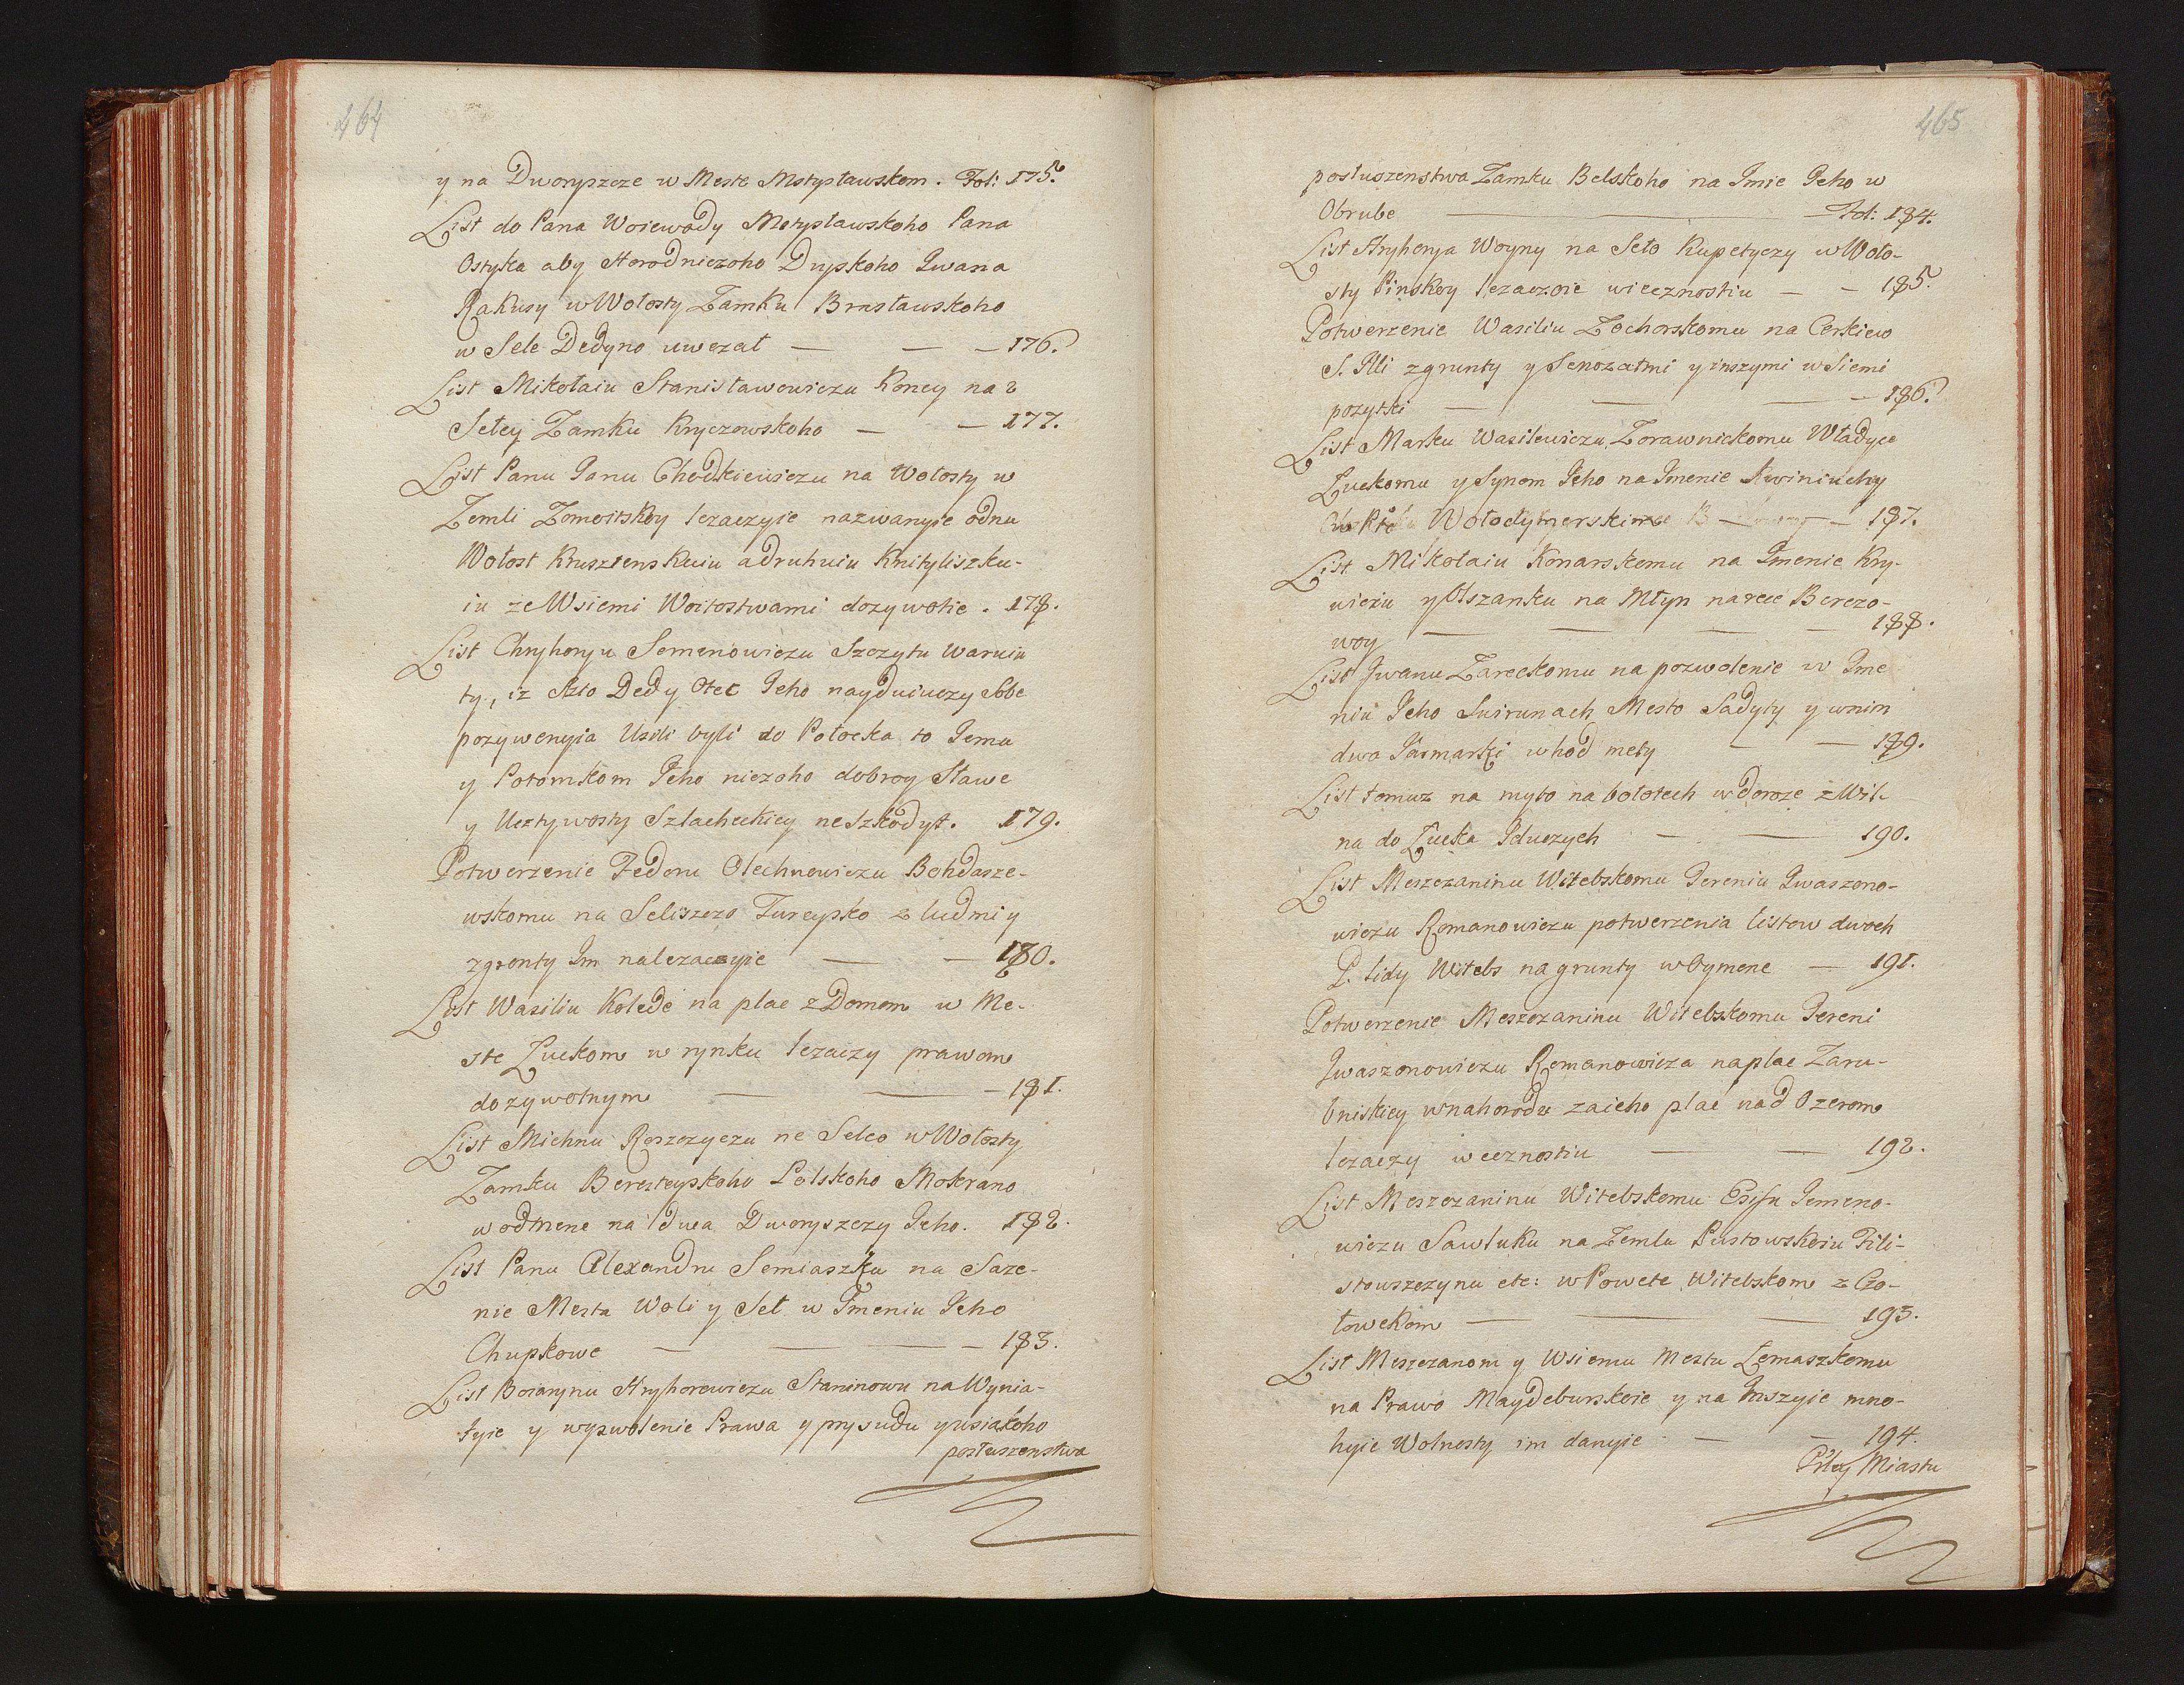 464
y na Dworyszcze w Meste Mstysławskom. Fol: 175.
List do Pana Woiewody Mstysławskoho Pana
Ostyka aby Horodniczoho Dryskoho Iwana
Rakusy w Wołosty Zamku Brasławskoho
w Sele Dedyno uwezał — — — 176.
List Mikołaiu Stanisławowiczu Koncy na 2
Sełcy Zamku Kryczowskoho — — 177.
List Panu Ianu Chodkiewiczu na Wołosty w
Zemli Zomoitskoy lezaczyie nazwanyie odnu
Wołost Kruszenskuiu a druhuiu Knityliszku-
iu ze Wsiemi Woitostwami dozywotie . 178.
List Chryhoryu Semenowiczu Szczytu waruiu
ty, iz szto Dedy Otec Ieho nayduiuczy sobe
pozywenyia Uszli byli do Połocka to Iemu
y Potomkom Ieho niczoho dobroy Sławe
y Ucztywosty Szlacheckiey neszkodyt. 179.
Potwerzenie Fedoru Olechnowiczu Bohdasze-
wskomu na Seliszczo Tureysko z ludmi y
zgronty Im nalezaczyie — — 180.
List Wasiliu Kolede na plac z Domom w Me-
ste Łuckom w rynku lezaczy prawom
dozywotnym — — 181.
List Michnu Roszczyczu ne Selco w Wołosty
Zamku Beresteyskoho Polskoho Mokrano
w odmene na dwa Dworyszczy Ieho. 182.
List Panu Alexandru Semiaszku na Saze-
nie Mesta Woli y Seł w Imeniu Ieho
Chupkowe — — — 183.
List Boiarynu Hryhorewiczu Staninowu na Wynia-
tyie y wyzwolenie Prawa y prysudu y usiakoho
posłuszenstwa
465
posłuszenstwa Zamku Belskoho na Imie Ieho w
Obrube — Fol: 184.
List Hryhorya Woyny na Seło Kupetyczy w Woło-
sty Pinskoy lezaczoie wiecznostiu — — 185.
Potwerzenie Wasiliu Zochorskomu na Cerkiew
S. Illi zgrunty y Senozatmi y inszymi wsiemi
pozytki — — — 186.
List Marku Wasilewiczu Zorawnickomu Władyce
Łuckomu y Synom Ieho na Imenie Kwiniuchy
Wołodymerskim — 187.
List Mikołaiu Konarskomu na Imenie Kry-
wiczu y Olszanku na Młyn na rece Berezo-
woy — — — — 188.
List Iwanu Zareckomu na pozwolenie w Ime
niu Ieho Suirunach Mesto Sadyty y wnim
dwa Iarmarki whod mety — — 189.
List tomuz na myto na bolotech w doroze z Wil-
na do Łucka Iduczych — — 190.
List Meszczaninu Witebskomu Iereniu Iwaszono-
wiczu Romanowiczu potwerzenia listow dwoch
P. lidy Witebs na grunty w bymene — 191.
Potwerzenie Meszczaninu Witebskomu Iereni
Iwaszonowiczu Romanowicza na plac Zaru-
bniskiey wnahorodu za ieho plac nad Ozerom
lezaczy wecznostiu — — 192.
List Meszczaninu Witebskomu Esifu Iemeno-
wiczu Sawluku na Zemlu Pustowskoiu Fili-
stowszczynu etc: w Powete Witebskom z Czo-
łowekom — — — 193.
List Meszczanom y Wsiemu Mestu Łomaszkomu
na Prawo Maydeburskoie y na Inszyie mno-
hyie Wolnosty im danyie — — 194.
Miastu